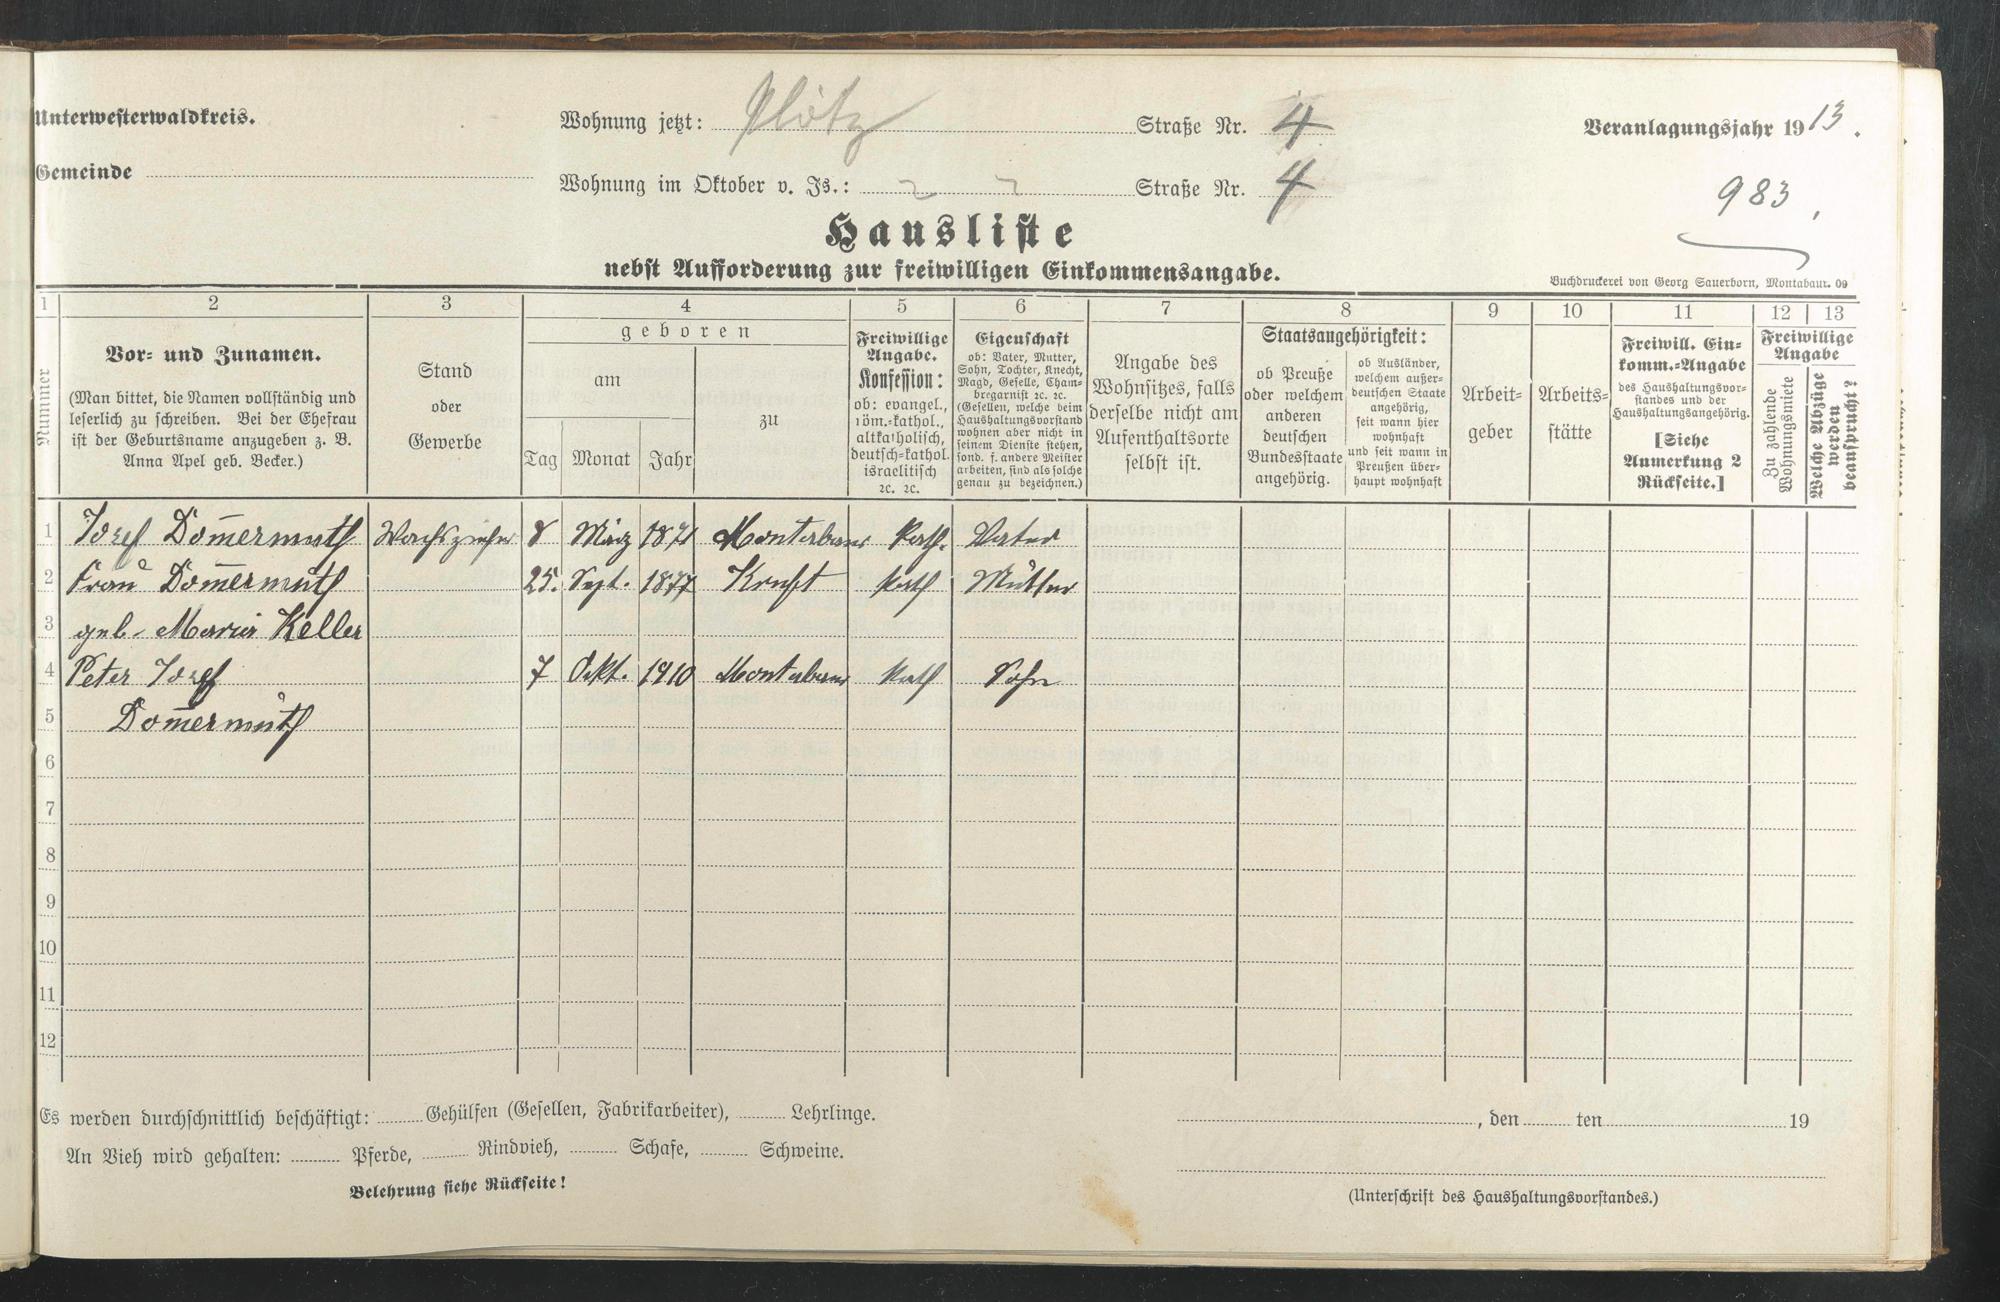 Unterwesterwaldkreis.
Wohnung jetzt: Plötz Straße Nr. 4
Veranlagungsjahr 1913.
Gemeinde
Wohnung im Oktober v. Js.: Straße Nr. 4
983,
Hausliste
nebst Aufforderung zur freiwilligen Einkommensangabe.
Buchdruckerei von Georg Sauerborn, Montabaur. 09
1 2 3 4 5 6 7 8 9 10 11 12 13
Nummer
Vor- und Zunamen.
(Man bittet, die Namen vollständig und
leserlich zu schreiben. Bei der Ehefrau
ist der Geburtsname anzugeben z. B.
Anna Apel geb. Becker.)
Stand
oder
Gewerbe
geboren
am
Tag Monat Jahr
zu
Freiwillige
Angabe.
Konfession:
ob: evangel.,
röm.-kathol.,
altkatholisch,
deutsch-kathol.
israelitisch
ec. ec.
Eigenschaft
ob: Vater, Mutter,
Sohn, Tochter, Knecht,
Magd, Geselle, Cham-
bregarnist ec. ec.
(Gesellen, welche beim
Haushaltungsvorstand
wohnen aber nicht in
seinem Dienste stehen,
sond. f. andere Meister
arbeiten, sind als solche
genau zu bezeichnen.)
Angabe des
Wohnsitzes, falls
derselbe nicht am
Aufenthaltsorte
selbst ist.
Staatsangehörigkeit:
ob Preuße
oder welchem
anderen
deutschen
Bundesstaate
angehörig.
ob Ausländer,
welchem außer-
deutschen Staate
angehörig,
seit wann hier
wohnhaft
und seit wann in
Preußen über-
haupt wohnhaft
Arbeit-
geber
Arbeits-
stätte
Freiwill. Ein-
komm.-Angabe
des Haushaltungsvor-
standes und der
Haushaltungsangehörig.
[Siehe
Anmerkung 2
Rückseite.]
Freiwillige
Angabe
Zu zahlende
Wohnungsmiete
Welche Abzüge
werden
beansprucht?
1 Josef Dom̄ermuth Wachszieher 8 März 1871 Montabaur Kath. Vater
2 Frau Dom̄ermuth 25. Sept. 1877 Kruft Kath Mutter
3 geb. Maria Keller
4 Peter Josef 7 Okt. 1910 Montabaur Kath Sohn
5 Dom̄ermuth
6
7
8
9
10
11
12
Es werden durchschnittlich beschäftigt: Gehülfen (Gesellen, Fabrikarbeiter), Lehrlinge.
, den ten 19
An Vieh wird gehalten: Pferde, Rindvieh, Schafe, Schweine.
Belehrung siehe Rückseite!
(Unterschrift des Haushaltungsvorstandes.)